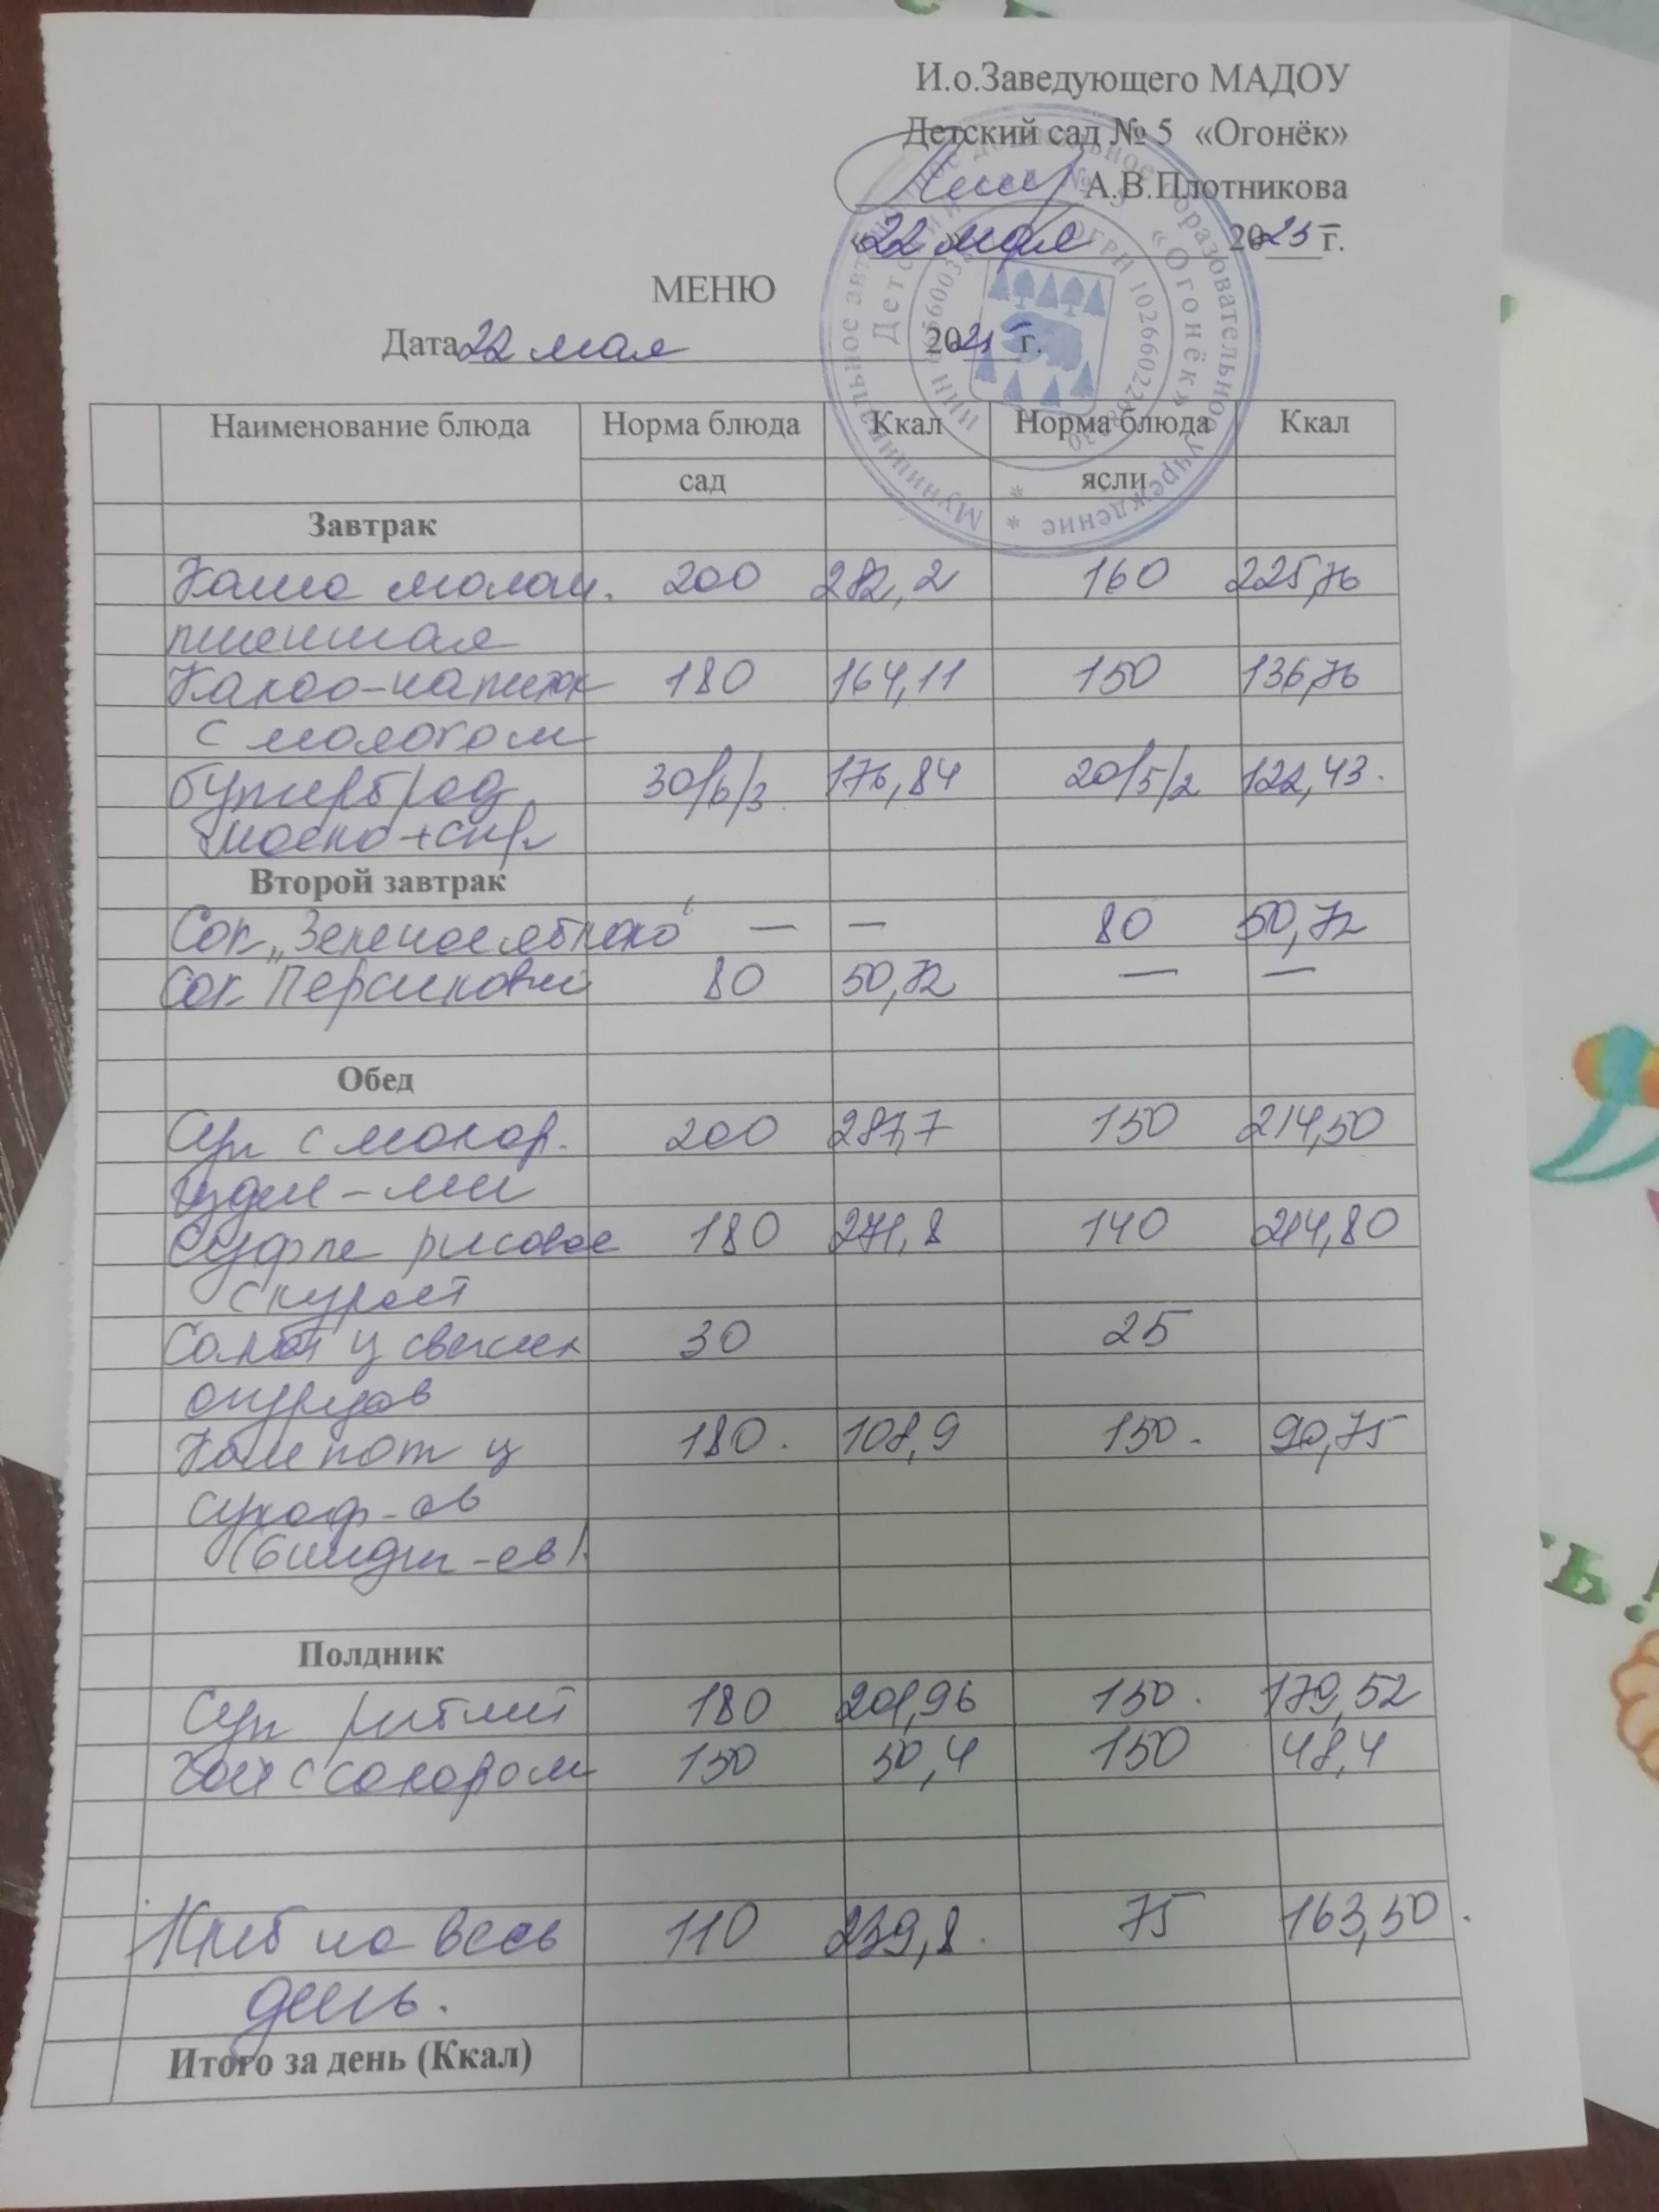 И.о.Заведующего МАДОУ
Детский сад № 5 «Огонёк»
А.В.Плотникова
«22» мая 2025 г.
МЕНЮ
Дата 22 мая 2025 г.
Наименование блюда Норма блюда Ккал Норма блюда Ккал
сад ясли
Завтрак
Каша молоч. 200 282,2 160 225,76
пшенная
Какао-напиток 180 164,11 150 136,76
с молоком
бутерброд 30/6/3 176,84 20/5/2 122,43.
масло+сыр
Второй завтрак
Сок „Зеленое яблоко" — — 80 50,72
Сок Персиковый 80 50,72 — —
Обед
Суп с макар. 200 287,7 150 214,50
издел-ми
Суфле рисовое 180 271,8 140 214,80
с курой
Салат из свежих 30 25
огурцов
Компот из 180. 108,9 150. 90,75
сухоф-ов
Полдник
Суп рыбный 180 201,96 150. 179,52
Чай с сахаром 150 50,4 150 48,4
Хлеб на весь 110 239,8. 75 163,50.
день.
Итого за день (Ккал)
Муниципальное автономное дошкольное образовательное учреждение
Детский сад № 5 «Огонёк»